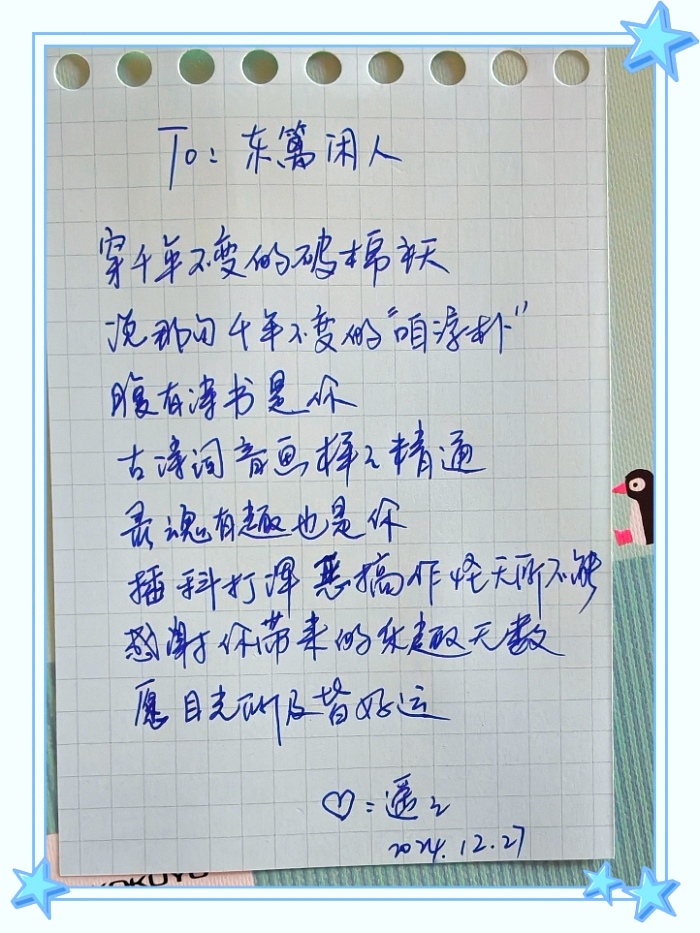 To: 东篱闲人
穿千年不变的破棉袄
说那句千年不变的“咱淳朴”
腹有诗书是你
古诗词音画样样精通
灵魂有趣也是你
插科打诨 恶搞作怪无所不能
感谢你带来的乐趣无数
愿目光所及皆好运
♡:遥之
2024.12.27
KOKUYO